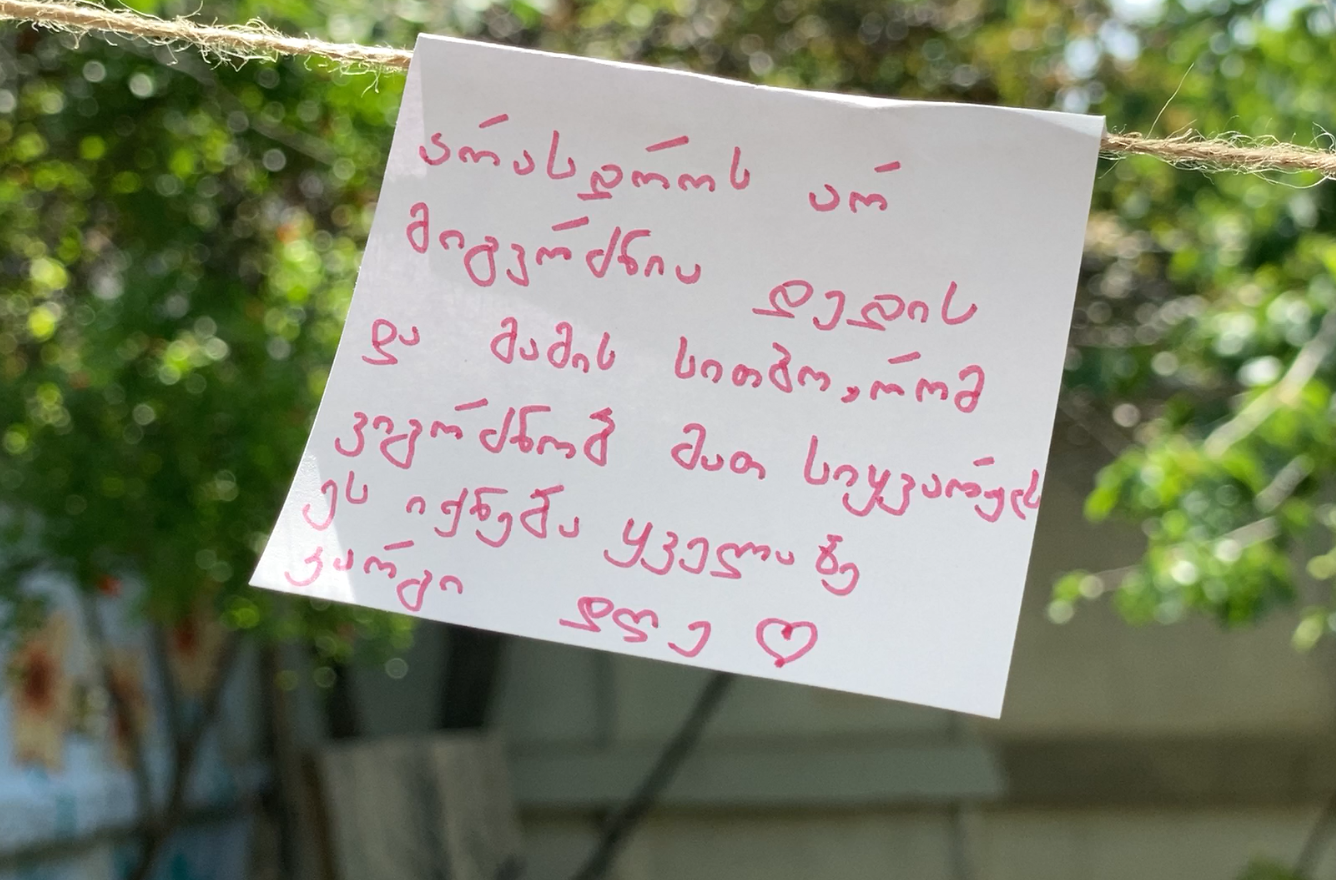 არასდროს არ
მიგვრძნია დედის
და მამის სითბო, რომ
ვიგრძნობ მათ სიყვარულს
ეს იქნება ყველაზე
კარგი დღე ♡